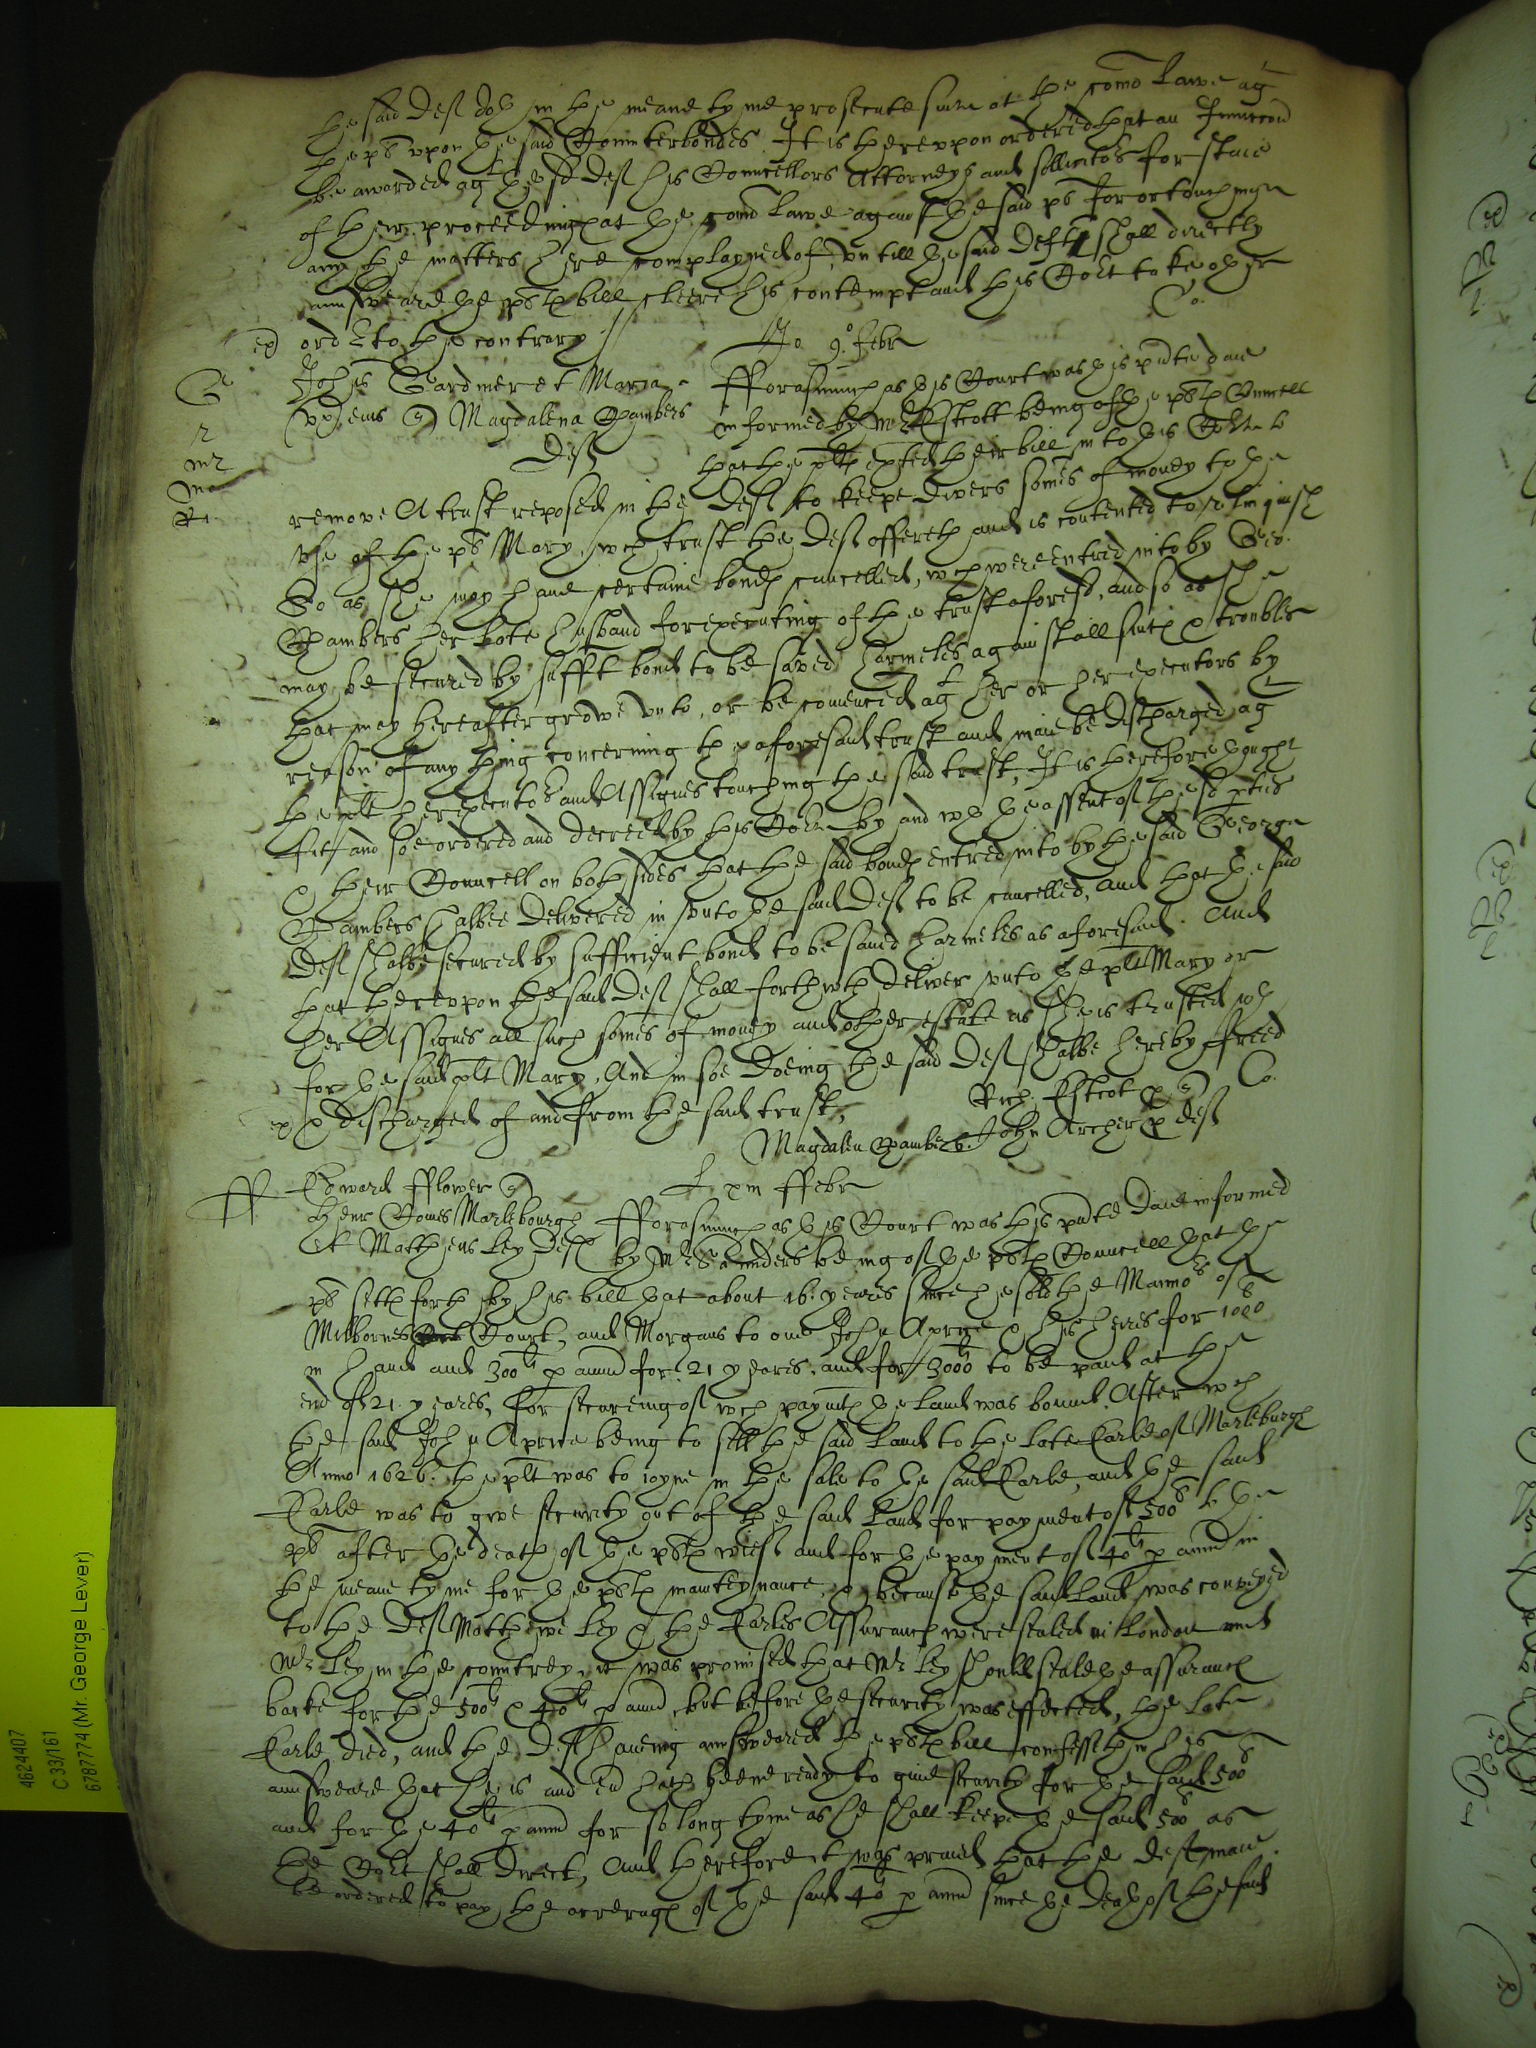 the said deft doth in the meane tyme prosecute suite at the comon Lawe agt
the pt upon the said Counterbondes. It is hereupon ordered that an Iniunccon
be awarded agt the sd deft his Councellors Attorneys and sollicitors for staie
of their proceedings at the comon Lawe against the said pt for or touching
any the matters here complayned of, untill the said deft shall directly
aunsweare the plts bill cleere his contempt and this Court take other
ex ordr to the contrary // Co.
Jo 9.o Febr
Johes Gardiner et Maria
ux eius Magdalena Chambers
Deft
Forasmuch as this Court was this pnte daie
informed by Mr Estcott being of the plts Councell
that the plt exhted their bill into this Courte to
remove A trust reposed in the deft to keepe divers somes of money to the
use of the pt Mary, wch trust the deft offereth and is contented to relinquish
So as she may have certaine bonds cancelled, wch were entred into by Geo:
Chambers her late husband for executing of the trust aforesd, and so as she
may be secured by suffit bond to be saved harmeles against all suits & trouble
that may hereafter growe unto, or be comenced agt her or her executors by
reason of any thing concerning the aforesaid trust and maie be discharged agt
the plt her executors and Assignes touching the said trust, It is therefore thought
fitt and soe ordered and decreed by this Courte by and wth the assent of the sd pties
& their Councell on both sides that the said bonds entred into by the said George
Chambers shalbee delivered in unto the said Deft to be cancelled, and that the said
Deft shalbe secured by sufficient bond to be saved harmeles as aforesaid. And
that thereupon the said Deft shall forthwth deliver unto the plt Mary or
her Assignes all such somes of money and other estate as she is trusted wth
for the said plt Mary, And in soe doeing the said Deft shalbe hereby freed
ex & discharged of and from the said trust,
Rich: Estcot p Co.
Magdalen Chambers. John Archer p deft
ff Edward Fflower
Henr Comes Marlebourgh
et Matheus Ley Defts
Forasmuch as this Court was this pnte daie informed
by Mr Saunders being of the plts Councell that the
pt setts forth by his bill that about 16. yeares since he sold the Mannors of
Milbornes Court, and Morgans to one John Aprice & his heires for 1000li
in hand and 300li p annu for 21 yeares, and for 3000li to be paid at the
end of 21. yeares, for secureing of wch paymts the Land was bound. After wch
the said John Aprice being to sell the said Land to the late Earle of Marleburgh
Anno 1626. the plt was to ioyne in the sale to the said Earle, and the said
Earle was to give security out of the said Land for payment of 500li to the
pt after the death of the plts wiefe and for the payment of 40li p annu in
the meane tyme for the plts mainteynance, & because the said Land was conveyed
to the Deft Mathewe Ley & the Earles Assurances were sealed in London and
Mr Ley in the countrey, it was promised that Mr Ley should seale the assurance
backe for the 500li & 40li p annu, but before the security was effected, the late
Earle died, and the Deft haveing aunsweared the plts bill confesseth in his
aunsweare that he is and hath beene ready to give security for the said 500li
and for the 40li p annu for so long tyme as he shall keepe the said 500li as
the Court shall direct, And therefore it was praied that the deft maie
be ordered to pay the arrerages of the said 40li p annu since the death of the said
4624407
C 33/161
6787774 (Mr. George Lever)